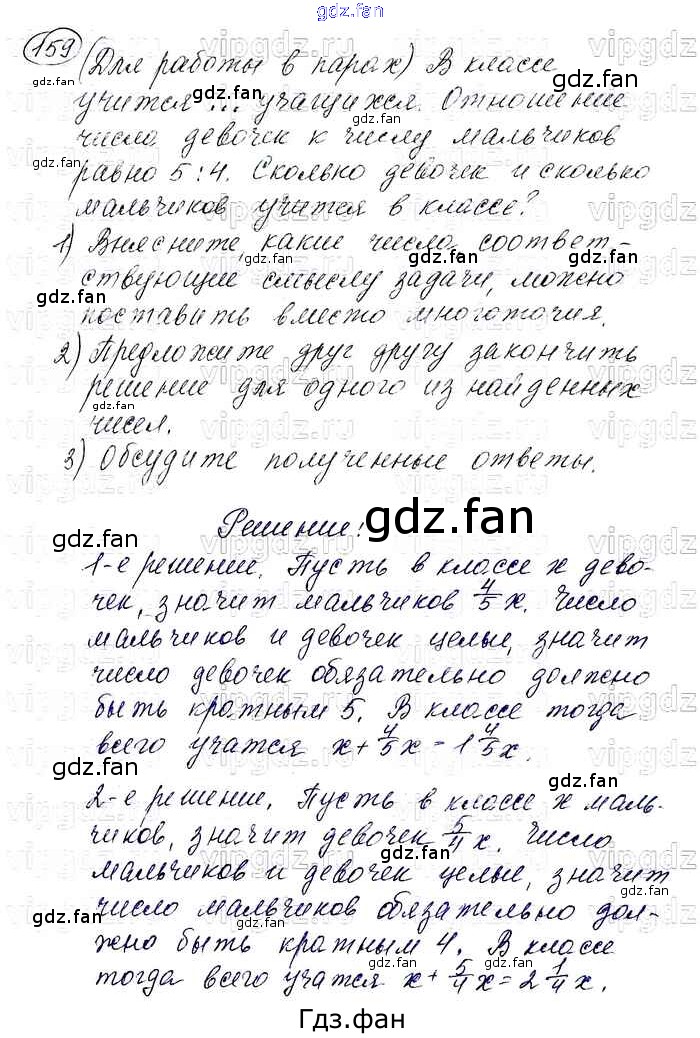 gdz.fan
159 (Для работы в парах) В классе
учится ... учащихся. Отношение
числа девочек к числу мальчиков
равно 5:4. Сколько девочек и сколько
мальчиков учится в классе?
1) Выясните, какие числа, соответ-
ствующие смыслу задачи, можно
поставить вместо многоточия.
2) Предложите друг другу закончить
решение для одного из найденных
чисел.
3) Обсудите полученные ответы.
Решение:
1-е решение. Пусть в классе x дево-
чек, значит мальчиков 4/5 x. Число
мальчиков и девочек целые, значит
число девочек обязательно должно
быть кратным 5. В классе тогда
всего учатся x + 4/5 x = 1 4/5 x.
2-е решение. Пусть в классе x маль-
чиков, значит девочек 5/4 x. Число
мальчиков и девочек целые, значит
число мальчиков обязательно дол-
жно быть кратным 4. В классе
тогда всего учатся x + 5/4 x = 2 1/4 x.
Гдз.фан